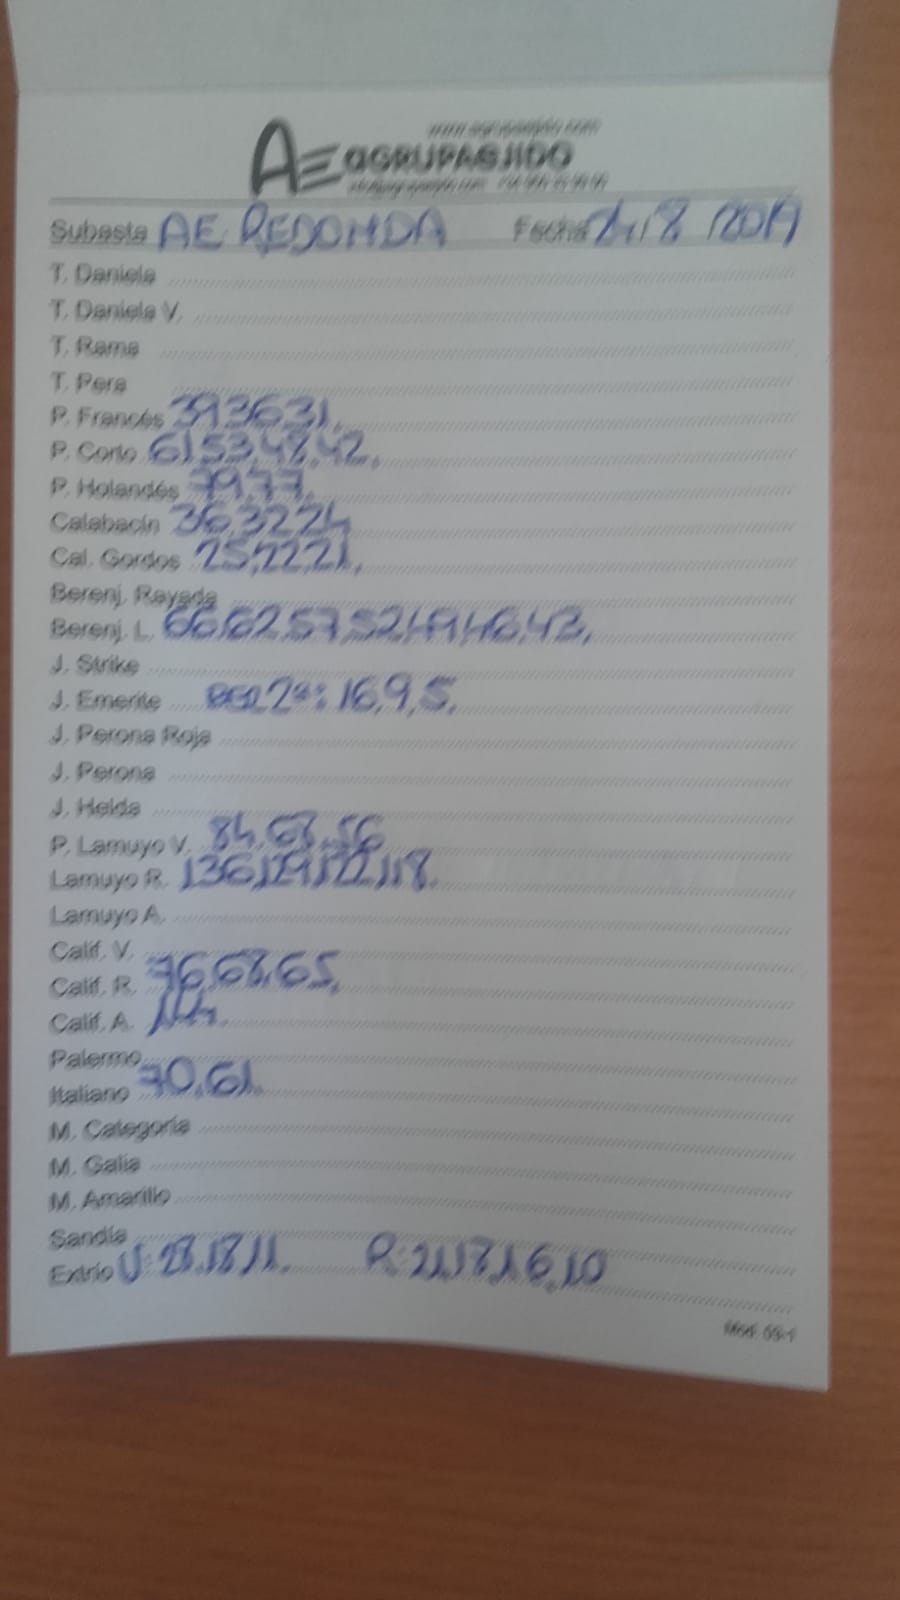 AE AGRUPAEJIDO
Subasta AE REDONDA Fecha 24/8/2019
T. Daniela
T. Daniela V.
T. Rama
T. Pera
P. Francés 39,36,31,
P. Corto 61,53,48,42,
P. Holandés 79,77,
Calabacín 36,32,24
Cal. Gordos 25,22,21,
Berenj. Rayada
Berenj. L. 66,62,57,52,49,46,43,
J. Strike
J. Emerite 2ª: 16,9,5,
J. Perona Roja
J. Perona
J. Helda
P. Lamuyo V. 84,68,56
Lamuyo R. 136,129,122,118.
Lamuyo A.
Calif. V.
Calif. R. 76,68,65,
Calif. A.
Palermo
Italiano 70,61.
M. Categoría
M. Galia
M. Amarillo
Sandía
Extrio V: 28,18,11. R: 21,18,16,10